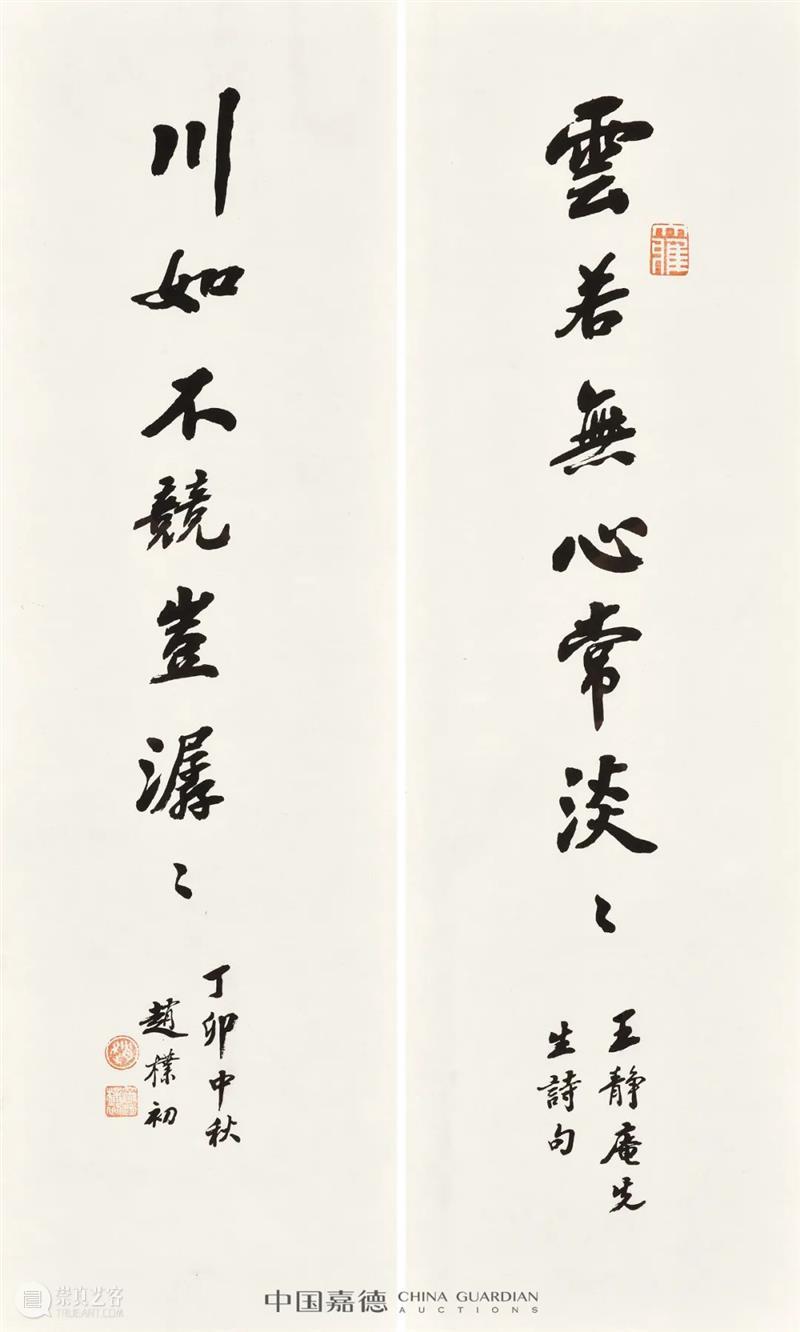 雲若無心常淡〻
王静庵先
生詩句
川如不競豈潺〻
丁卯中秋
趙樸初
崇真艺客
TRUEART.COM
中国嘉德 CHINA GUARDIAN
AUCTIONS